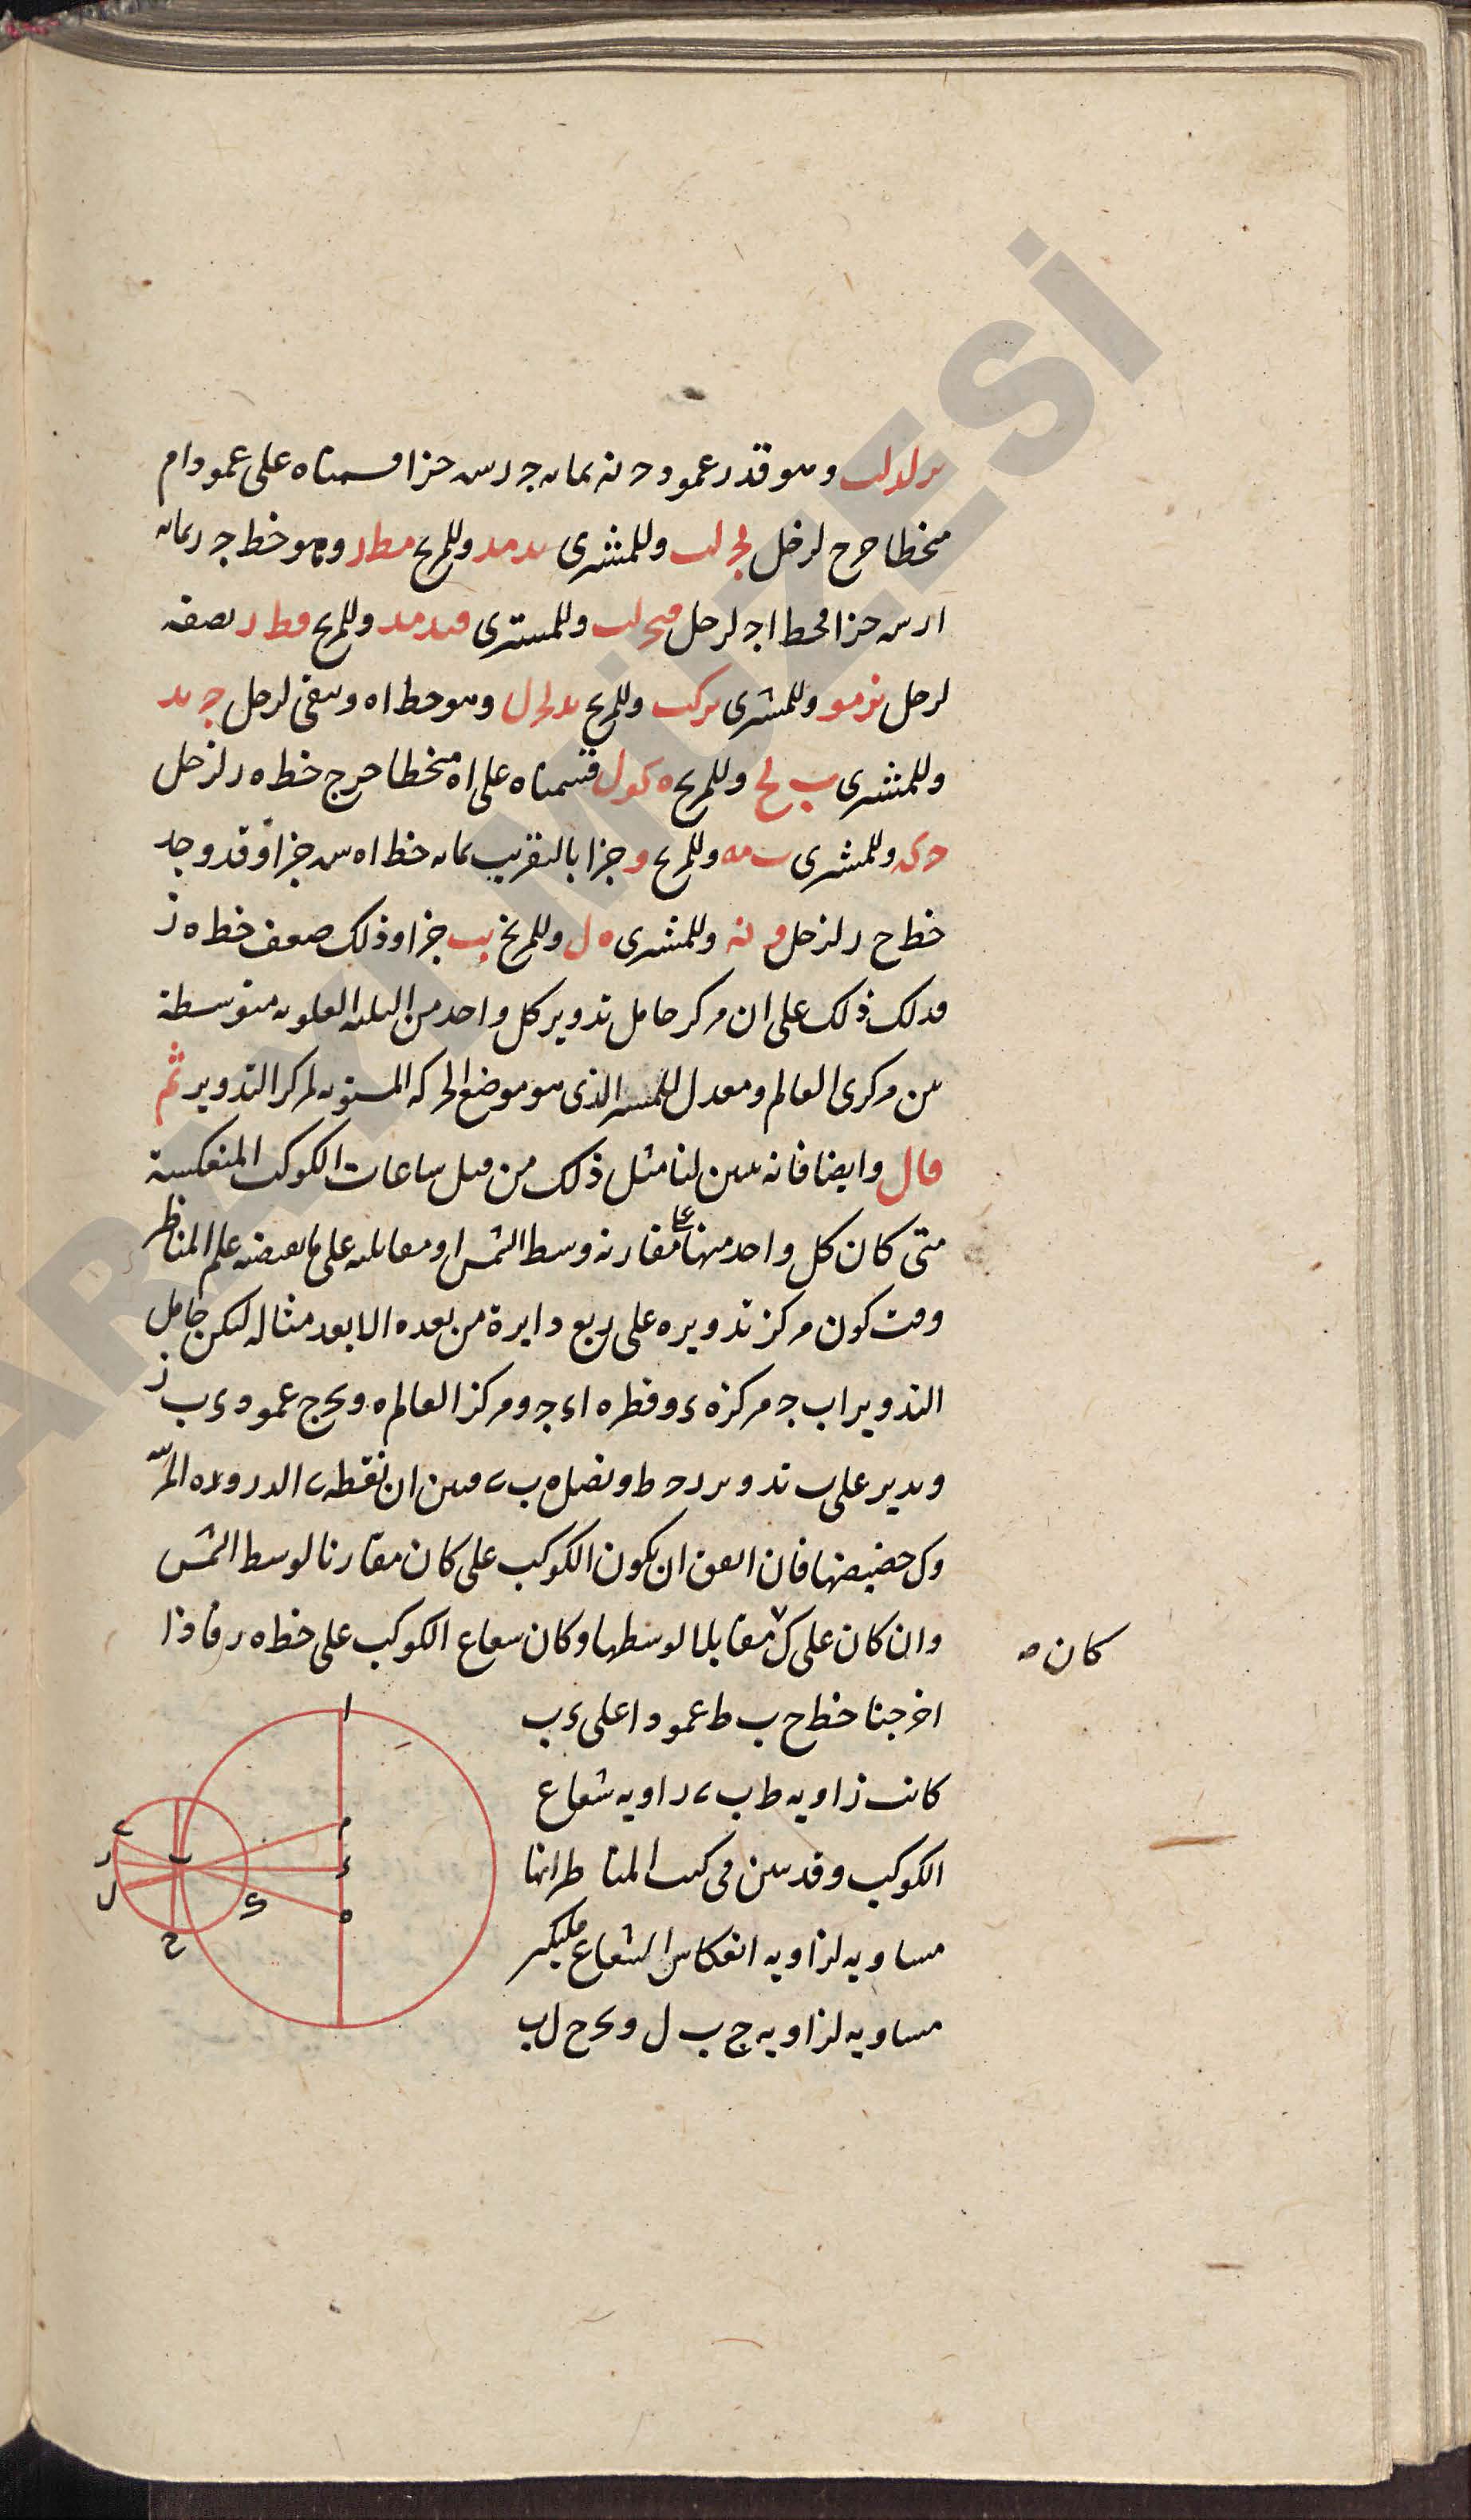 وهو قدر عمود حه بمابه جر س جزا قسمناه على عمود ام
منحطا خرج لزحل لح لب وللمشترى ند مد وللمريخ مط ر وهو خط جر بمابه
ار س جزا فخط اج لزحل قح لب وللمشترى قند مد وللمريخ قط ر نصفه
لزحل نز مو وللمشترى نز كب وللمريخ ند لج ل وهو خط اه وبقى لزحل ج ند
وللمشترى ب لح وللمريخ ه كو ل قسمناه على اه منحطا خرج خط ه ر لزحل
ج كه وللمشترى ب مه وللمريخ و جزا بالتقريب بمابه خط اه س جزا وقد وجد
خط ح ر لزحل و نه وللمشترى ه ل وللمريخ يب جزا وذلك ضعف خط ه ز
فدلك ذلك على ان مركز حامل تدوير كل واحد من الثلثه العلويه متوسطة
بين مركزى العالم ومعدل للمسير الذى هو موضع الحركه المستويه لمركز التدوير ثم
قال وايضا فانه يتبين لنا مثل ذلك من قبل ساعات الكوكب المنعكسة
متى كان كل واحد منها على مقارنه وسط الشمس او مقابلته على ما يقتضيه علم المناظر
وقت كون مركز تدويره على ربع دايرة من بعده الابعد مثاله ليكن حامل
التدوير اب ج مركزه ء وقطره اء ج ومركز العالم ه ويخرج عمود ء ب ز
وندير على ب تدوير ر ح ط ونصل ه ب ى فبين ان نقطه ى الذروه المرئيه
وك حضيضها فان اتفق ان يكون الكوكب على كان مقارنا لوسط الشمس
وان كان على ك مقابلا لوسطها وكان شعاع الكوكب على خط ه ر فاذا
كان صه
اخرجنا خط ح ب ط عمودا على ء ب
كانت زاويه ط ب ى زاويه شعاع
الكوكب وقد تبين فى كتب المناظر انها
مساويه لزاويه انعكاس الشعاع فليكن
مساويه لزاويه ح ب ل ويخرج ل ب
ا
م
ء
ه
ب
ى
ر
ل
ك
ح
ARAYI MÜZESİ